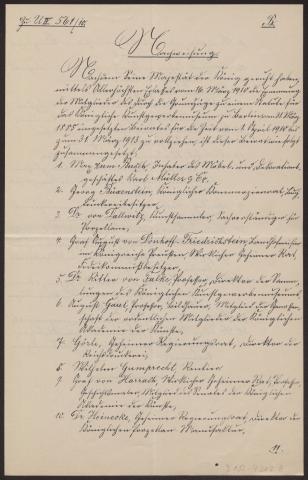 Zu U IV. 561/10.
Nachweisung.
Nachdem Seine Majestät der König geruht haben,
mittels Allerhöchsten Erlasses vom 16. März 1910 die Ernennung
der Mitglieder des durch die Grundzüge zu einem Statute für
das Königliche Kunstgewerbemuseum zu Berlin vom 11. März
1885 eingesetzten Beirates für die Zeit vom 1. April 1910 bis
zum 31. März 1913 zu vollziehen, ist dieser Beirat wie folgt
zusammengesetzt:
1. Max Inhaber des Möbel- und Dekorations-
geschäfts Karl Müller & Co.
2. Georg Büxenstein, Königlicher Kommerzienrat, Buch-
druckereibesitzer,
3. Dr. von Dallwitz, Kunstsammler, Sachverständiger für
Porzellane,
4. Graf August von Dönhoff-Friedrichstein, Landhofmeister
im Königreich Preußen, Wirklicher Geheimer Rat,
Fideikommißbesitzer,
5. Dr. Ritter von Falke, Professor, Direktor der Samm-
lungen des Königlichen Kunstgewerbemuseums
6. August Gaul, Professor, Bildhauer, Mitglied der Genossen-
schaft der ordentlichen Mitglieder der Königlichen
Akademie der Künste,
7. Görte, Geheimer Regierungsrat, Direktor der
Reichsdruckerei,
8. Wilhelm Gumprecht, Rentier
9. Graf von Harrach, Wirklicher Geheimer Rat, Professor,
Geschichtsmaler, Mitglied des Senates der Königlichen
Akademie der Künste,
10. Dr. Heinecke, Geheimer Regierungsrat, Direktor der
Königlichen Porzellan Manufaktur,
11.